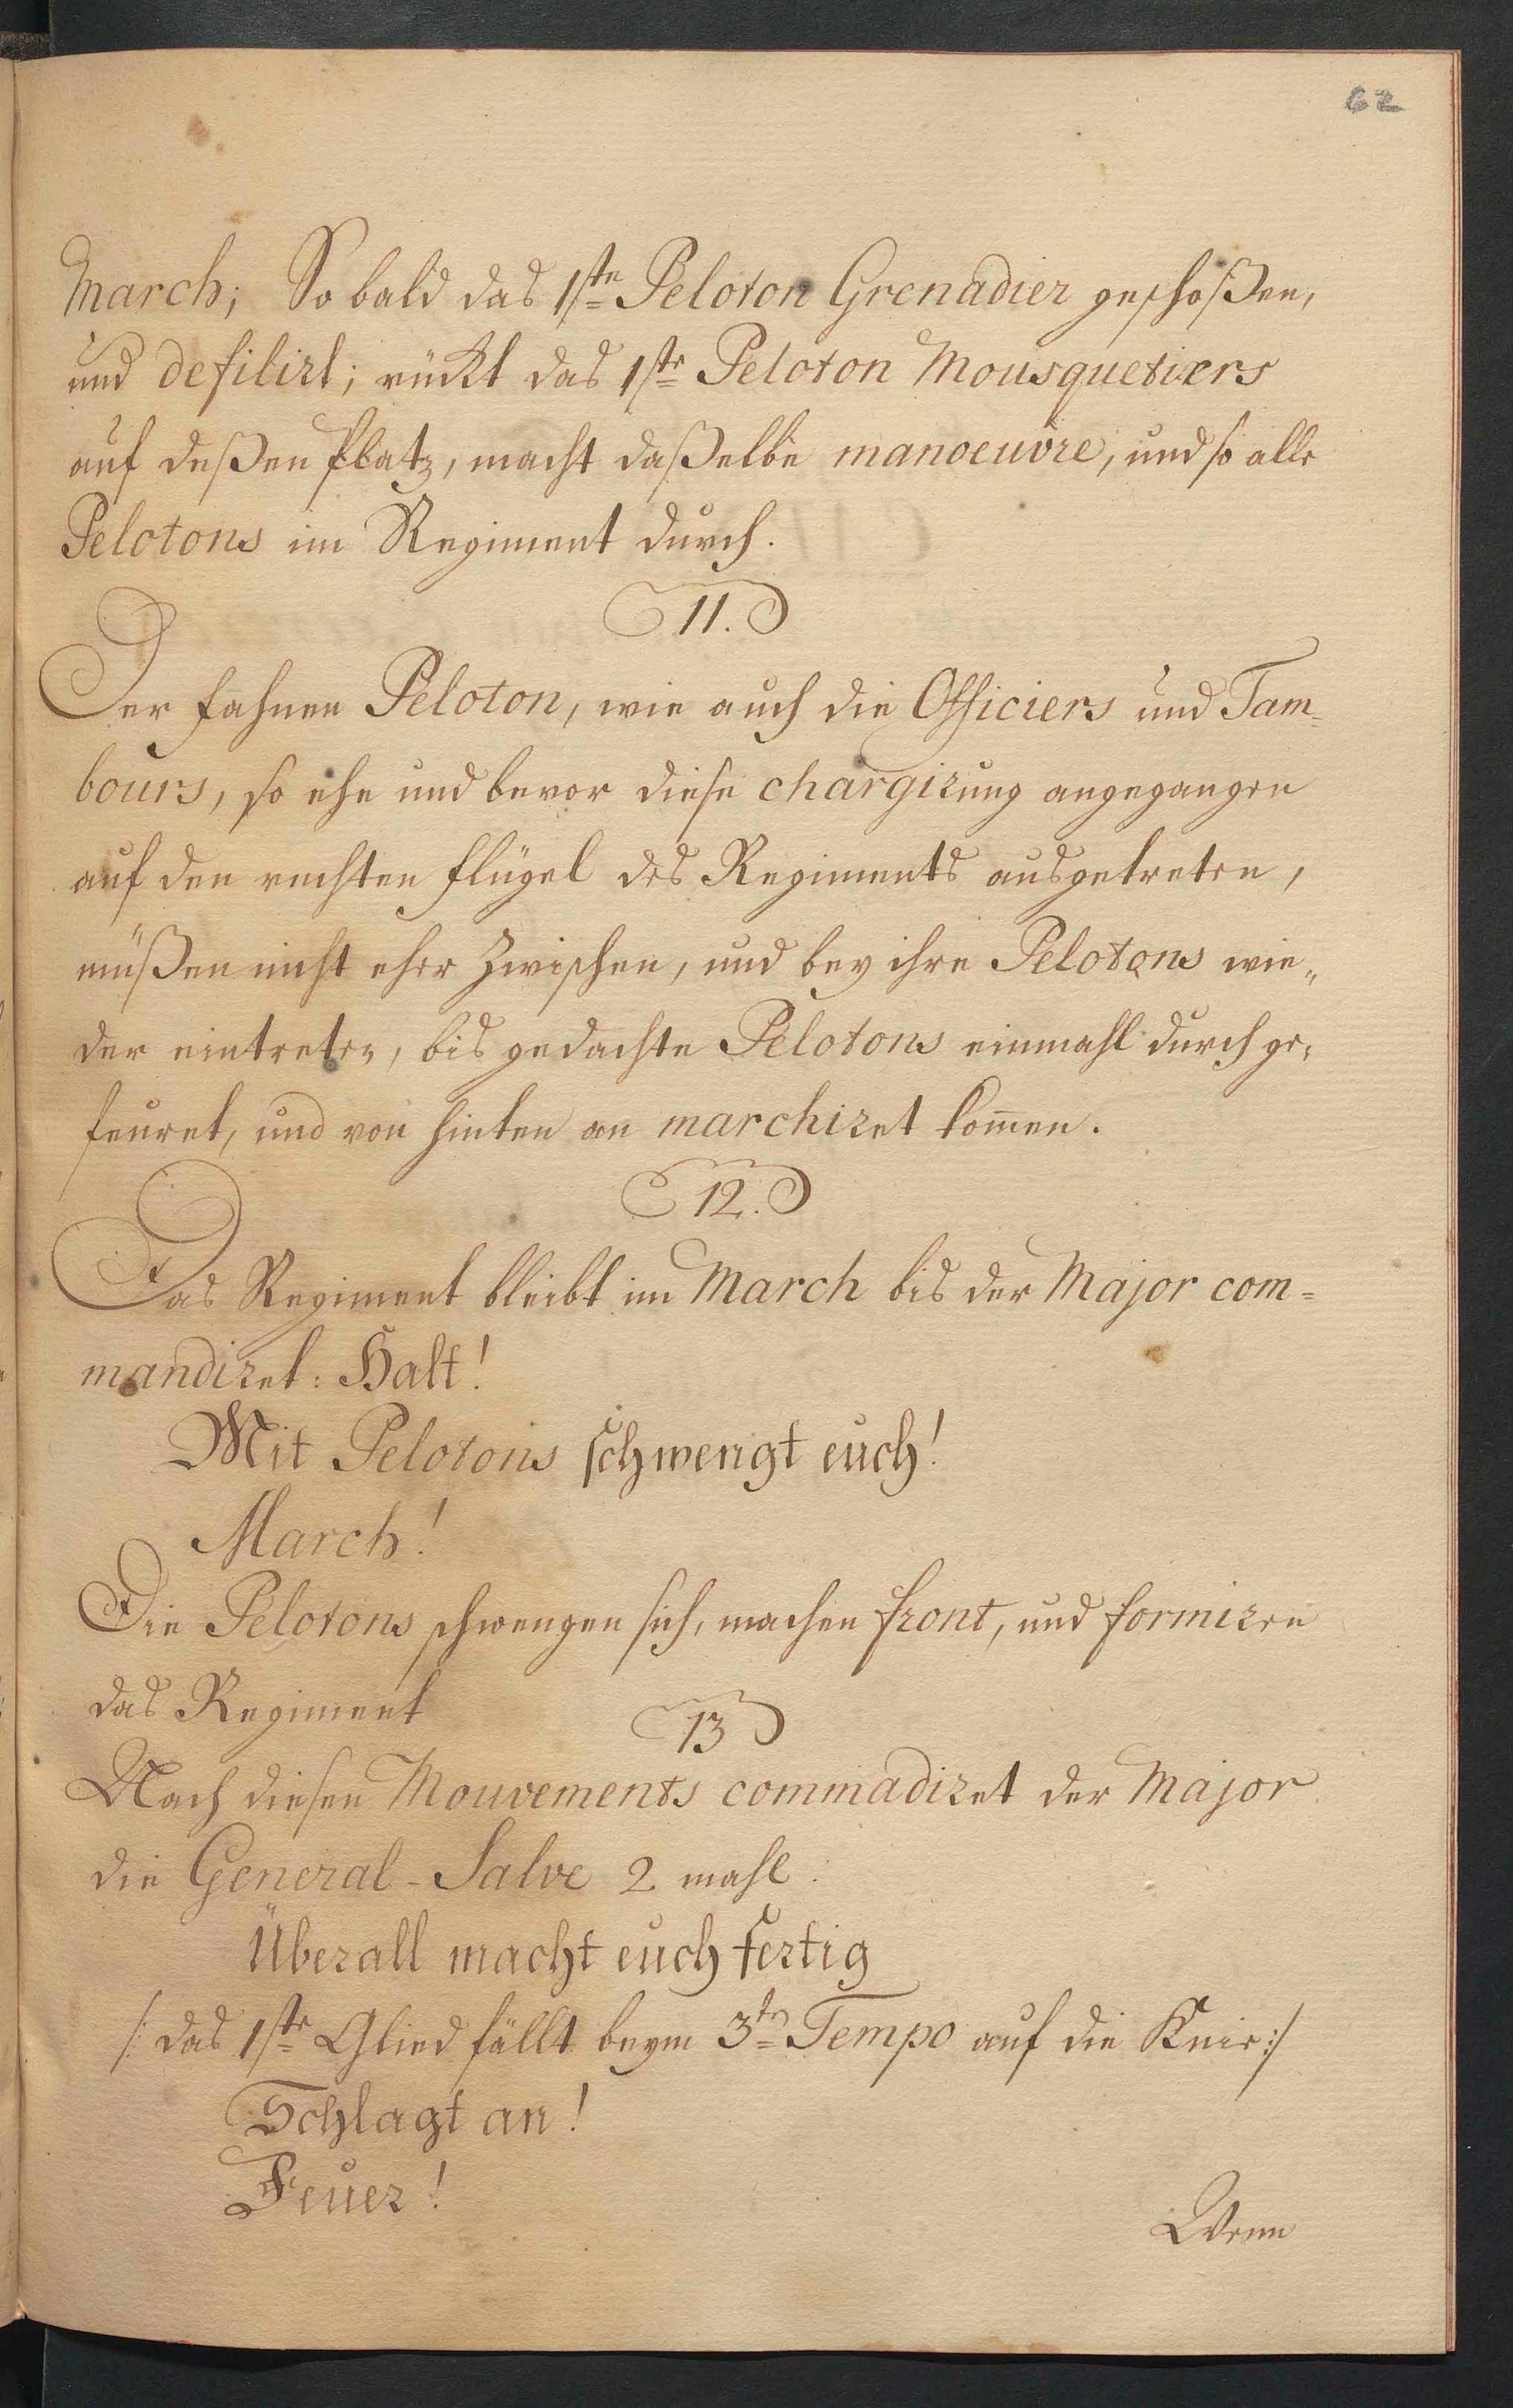 62
March; So bald das 1ste Peloton Grenadier geschoßen,
und defilirt; rückt das 1ste Peloton Mousquetiers
auf deßen Platz, macht daßelbe manoeuvre, und so alle
Pelotons im Regiment durch.
11.
Der Fahnen Peloton, wie auch die Officiers und Tam=
bours, so ehe und bevor diese chargirung angegangen
auf den rechten Flügel des Regiments ausgetreten,
müßen nicht eher zwischen, und bey ihre Pelotons wie„
der eintreten, bis gedachte Pelotons einmahl durch ge„
feuret, und von hinten an marchiret komen.
12.
Das Regiment bleibt im March bis der Major com=
mandiret: Halt!
Mit Pelotons schwengt euch!
March!
Die Pelotons schwengen sich, machen front, und formiren
das Regiment
13
Nach diesen Mouvements commadiret der Major
die General-Salve 2 mahl.
Überall macht euch fertig
/: das 1ste Glied fällt beym 3ten Tempo auf die Knie :/
Schlagt an!
Feuer!
Wenn